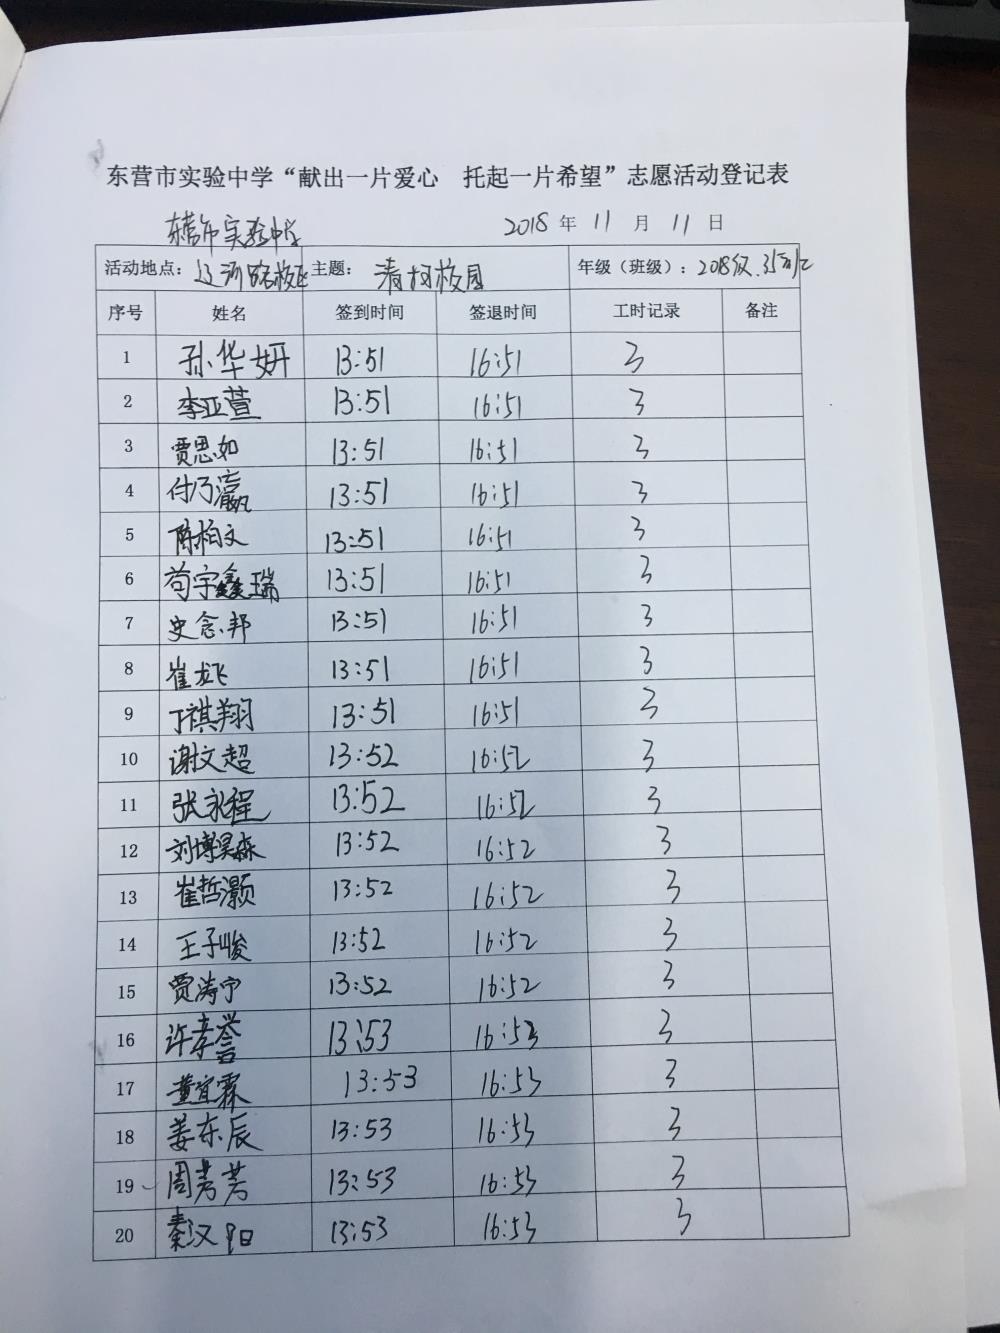 东营市实验中学“献出一片爱心　托起一片希望”志愿活动登记表
2018 年 11 月 11 日
东营市实验中学
活动地点： 辽河路校区 主题： 清扫校园 年级（班级）： 2018级
序号 姓名 签到时间 签退时间 工时记录 备注
1 孙华妍 13:51 16:51 3
2 李亚萱 13:51 16:51 3
3 贾思如 13:51 16:51 3
4 付乃瀛 13:51 16:51 3
5 陈柏文 13:51 16:51 3
6 苟宇鑫瑞 13:51 16:51 3
7 史念邦 13:51 16:51 3
8 崔龙飞 13:51 16:51 3
9 丁祺翔 13:51 16:51 3
10 谢文超 13:52 16:52 3
11 张永程 13:52 16:52 3
12 刘博昊森 13:52 16:52 3
13 崔哲灏 13:52 16:52 3
14 王子峻 13:52 16:52 3
15 贾涛宁 13:52 16:52 3
16 许孝誉 13:53 16:53 3
17 董宜霖 13:53 16:53 3
18 姜东辰 13:53 16:53 3
19 周芳 13:53 16:53 3
20 秦汉阳 13:53 16:53 3